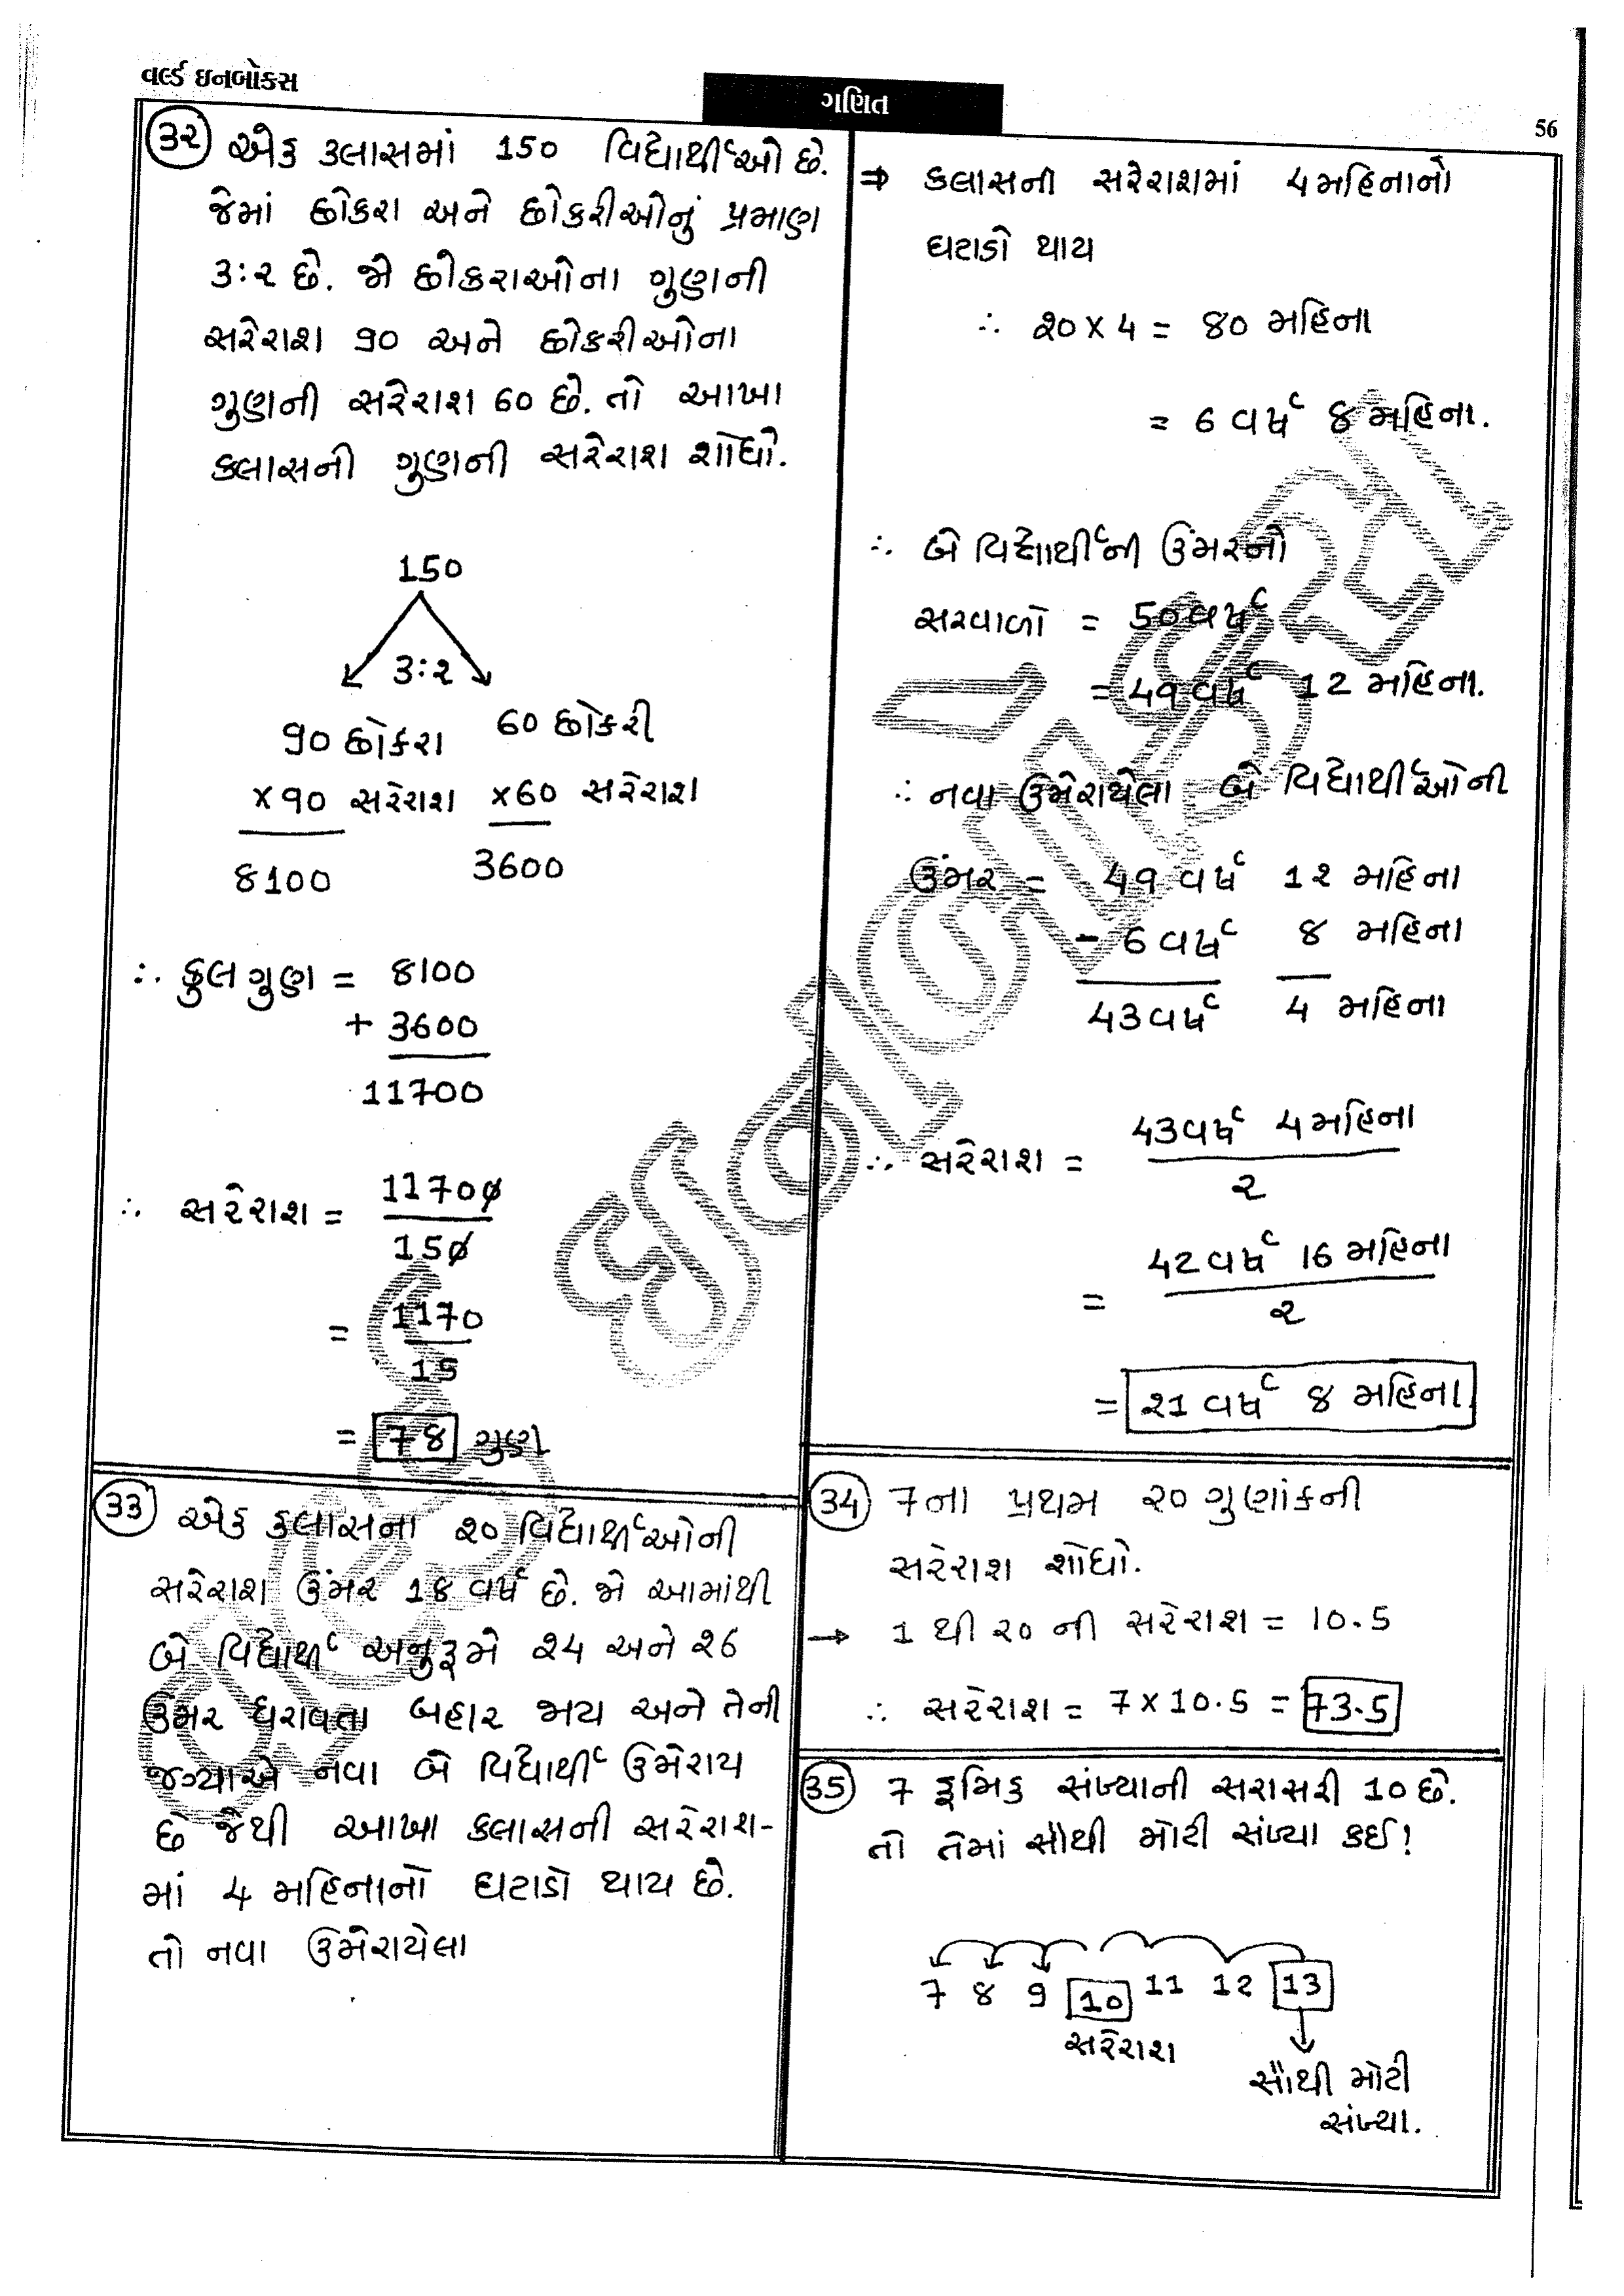 વર્લ્ડ ઇનબોક્સ
ગણિત
56
૩૨ એક ક્લાસમાં 150 વિદ્યાર્થીઓ છે.
જેમાં છોકરા અને છોકરીઓનું પ્રમાણ
૩:૨ છે. જો છોકરાઓના ગુણની
સરેરાશ ૧૦ અને છોકરીઓના
ગુણની સરેરાશ 60 છે. તો આખા
ક્લાસની ગુણની સરેરાશ શોધો.
150
૩:૨
90 છોકરા 60 છોકરી
x ૧૦ સરેરાશ x60 સરેરાશ
8100 3600
∴ કુલ ગુણ = 8100
+ 3600
11700
∴ સરેરાશ = 11700
150
= 1170
15
= 78 ગુણ
33 એક ક્લાસના ૨૦ વિદ્યાર્થીઓની
સરેરાશ ઉંમર 18 વર્ષ છે. જો આમાંથી
બે વિદ્યાર્થી અનુક્રમે ૨4 અને ૨6
ઉંમર ધરાવતા બહાર જાય અને તેની
જગ્યાએ નવા બે વિદ્યાર્થી ઉમેરાય
છે જેથી આખા ક્લાસની સરેરાશ-
માં 4 મહિનાનો ઘટાડો થાય છે.
તો નવા ઉમેરાયેલા
⇒ ક્લાસની સરેરાશમાં 4 મહિનાનો
ઘટાડો થાય
∴ ૨0 x 4 = 80 મહિના
= 6 વર્ષ 8 મહિના.
∴ બે વિદ્યાર્થીની ઉંમરનો
સરવાળો = 50 વર્ષ
= 4૧ વર્ષ 12 મહિના.
∴ નવા ઉમેરાયેલા બે વિદ્યાર્થીઓની
ઉંમર = 4૧ વર્ષ 1૨ મહિના
- 6 વર્ષ 8 મહિના
43 વર્ષ 4 મહિના
∴ સરેરાશ = 43 વર્ષ 4 મહિના
૨
= 42 વર્ષ 16 મહિના
૨
= ૨1 વર્ષ 8 મહિના.
34 7ના પ્રથમ ૨૦ ગુણાંકની
સરેરાશ શોધો.
→ 1 થી ૨૦ ની સરેરાશ = 10.5
∴ સરેરાશ = 7 x 10.5 = 73.5
35 7 ક્રમિક સંખ્યાની સરાસરી 10 છે.
તો તેમાં સૌથી મોટી સંખ્યા કઈ!
7 8 9 10 11 12 13
સરેરાશ
સૌથી મોટી
સંખ્યા.
વર્લ્ડ ઇનબોક્સ